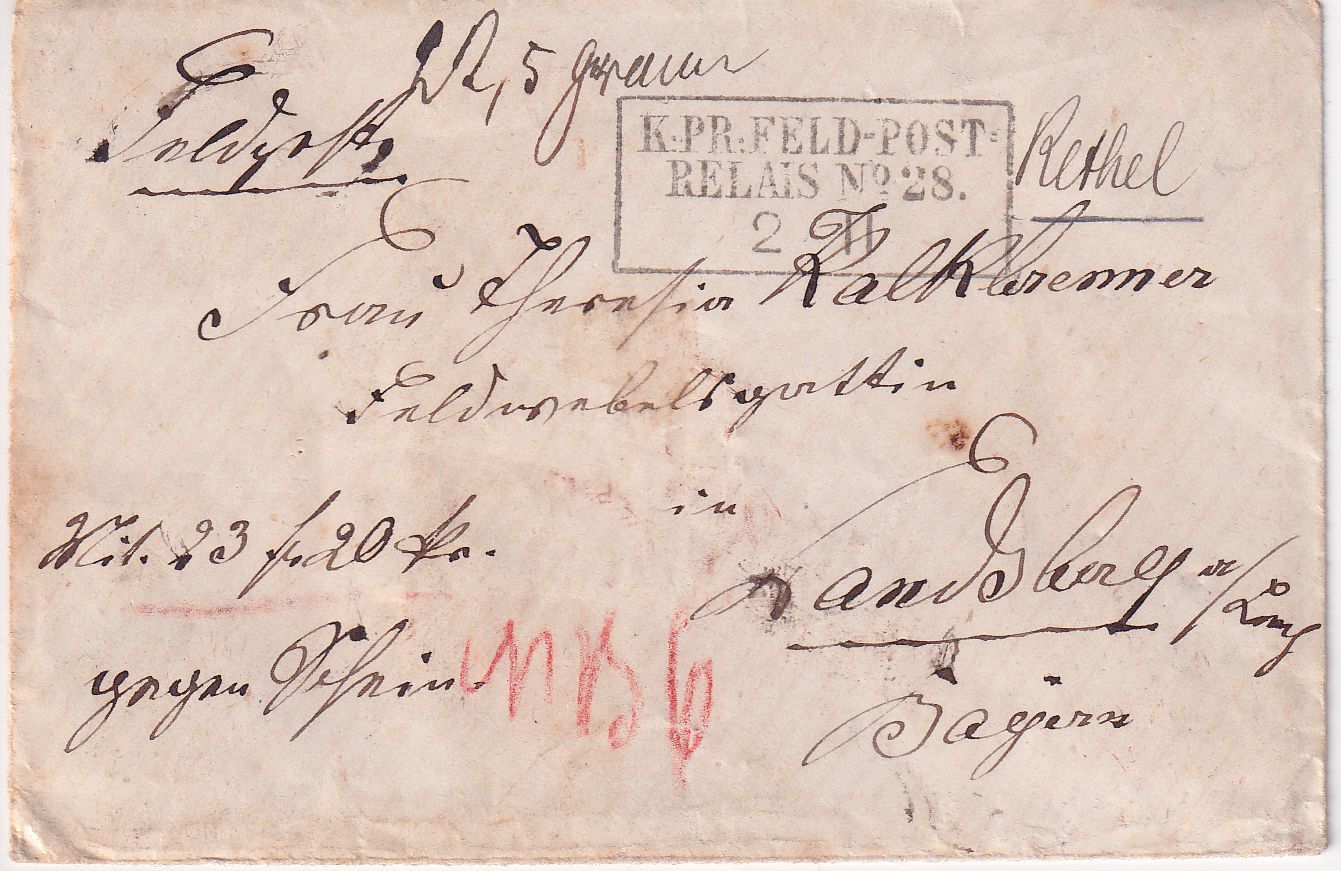 Feldpost.
5 Gramm
K:PR:FELD-POST-
RELAIS No 28.
2 11
Rethel
Frau Theresia Kalkbrenner
Feldwebelsgattin
in
Landsberg a/Lech
Bayern
Mit 23 fl 20 kr.
gegen Schein